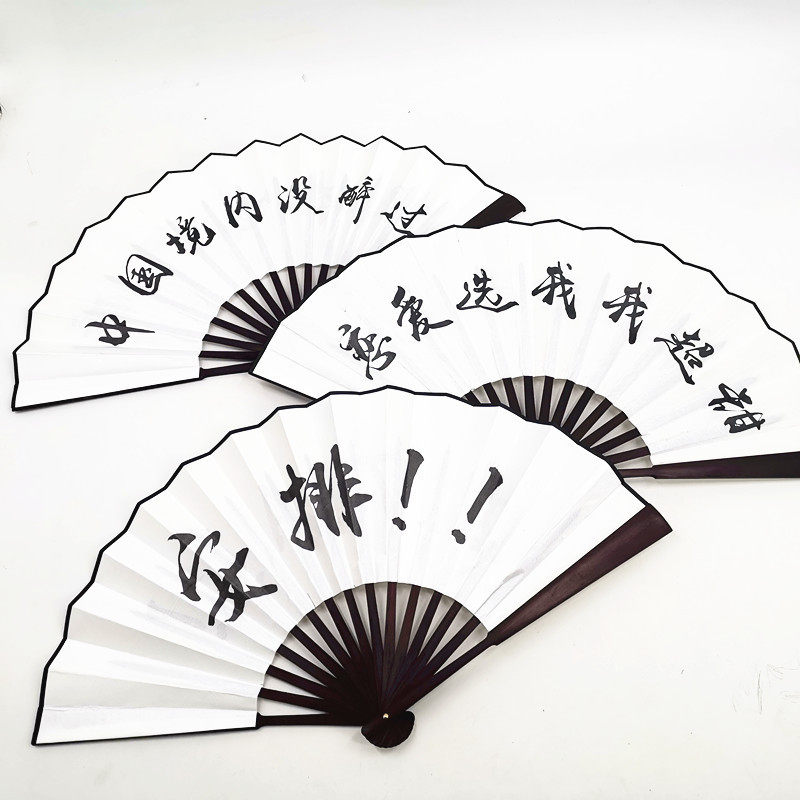 中国境内没醉过
恋爱选我我超甜
安排!!